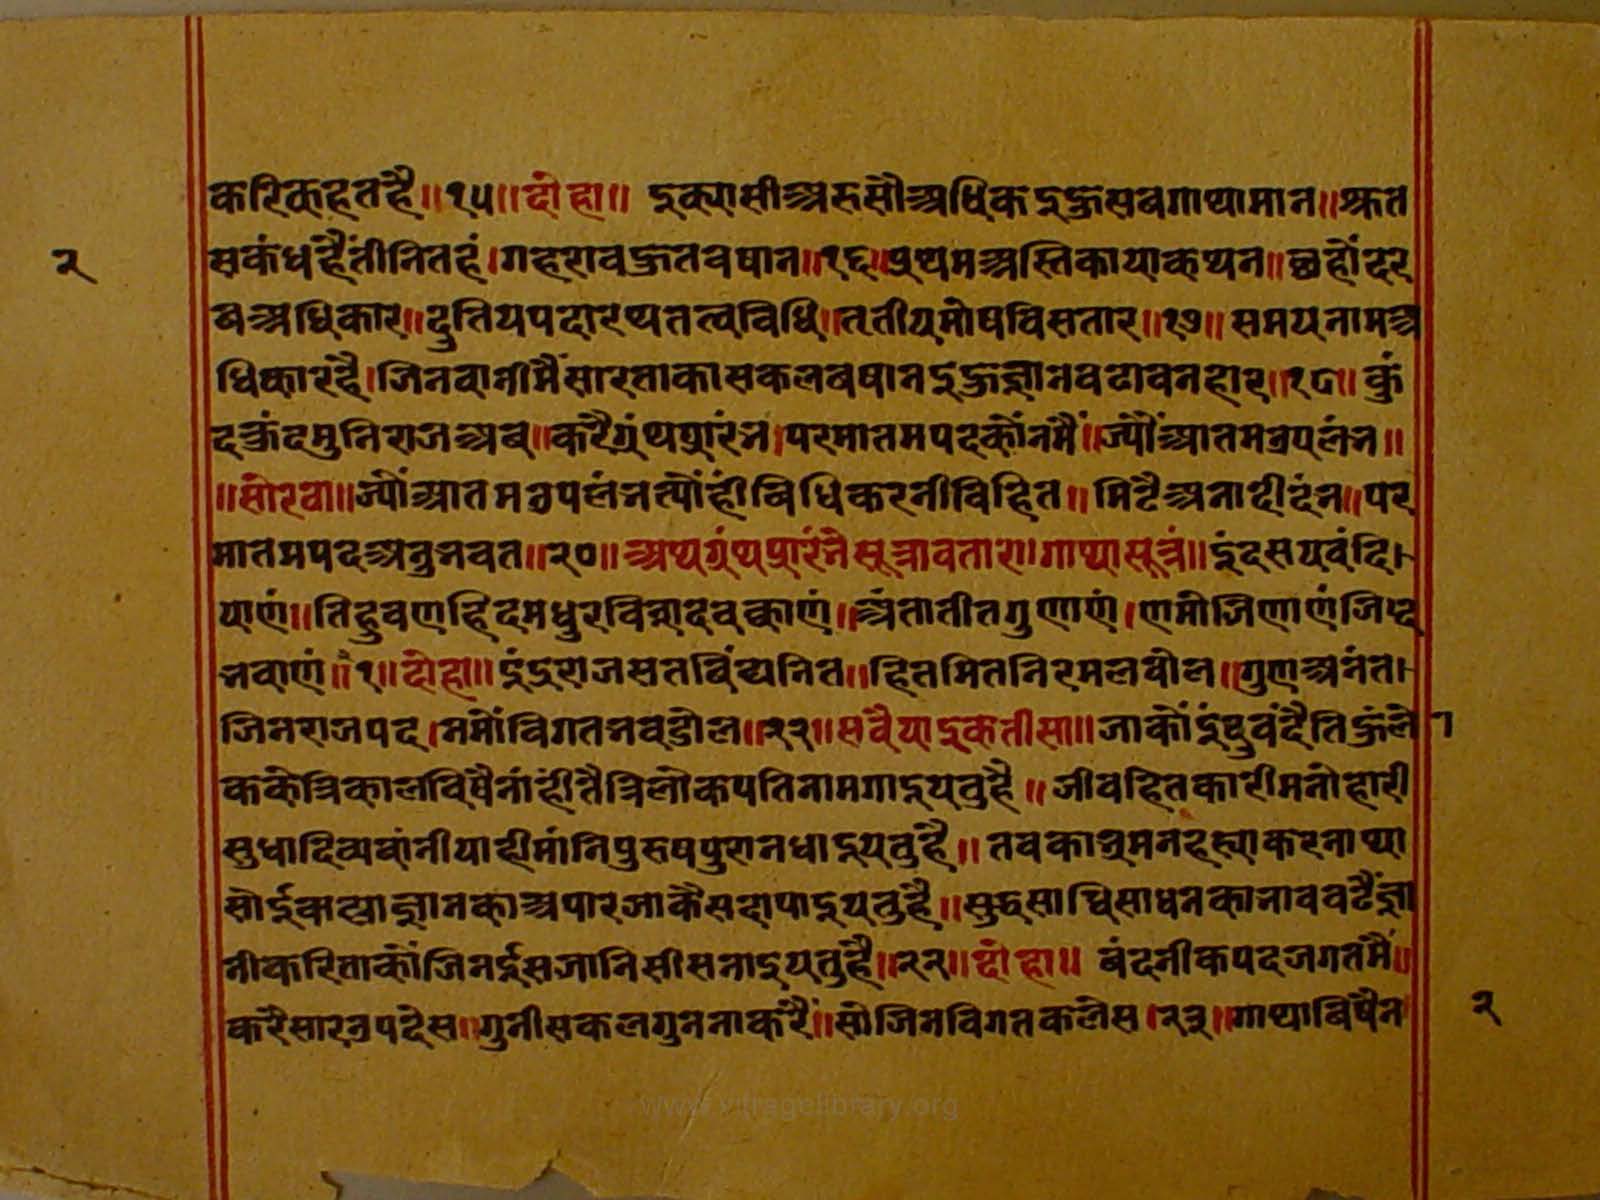 करि कहत है॥१५॥दोहा॥ इक्यासी अरु सौ अधिक इहु सब गाथा मान॥श्रुत
सकंध है तीनि तहं।गहरा बहुत बषान॥१६॥प्रथम अस्तिकाया कथन॥छहों दर
ब अधिकार॥दुतिय पदारथ तत्व विधि॥तृतीय मोष विसतार॥१७॥समय नाम अ
धिकार है।जिनवानी मैं सार ताका सकल बषान इहु ज्ञान बढावनहार॥१८॥कुं
द कुंद मुनिराज अब॥करै ग्रंथ प्रारंभ।परमातम पद कौं नमैं॥ज्यौं आतम उपलंभ॥
॥सोरठा॥ज्यौं आतम उपलंभ त्यौं ही बिधि करनी विहित॥मिटै अनादी दंभ॥पर
मातम पद अनुभवत॥२०॥अथ ग्रंथ प्रारंभै सूत्रावतारा।गाथा सूत्रं॥इंदसयवंदि।
याणं॥तिहुवणहिदमधुरविसादवक्काणं॥अंतातीतगुणाणं।णमो जिणाणं जिद
भवाणं॥१॥दोहा॥इंदराज सत बिंद्य नित॥हित मित निरमल बोल॥गुण अनंत।
जिनराज पद।नमौं विगत भव डोल॥२१॥सवैया इकतीसा॥जाकौं इंदु वंदै तिहुं लो
कके त्रिकाल विषै नांहीं तै त्रिलोकपति नाम गाइयतु है॥जीव हितकारी मनोहारी
सुधा दिव्य बांनी याही मांनि पुरुष पुरान धाइयतु है॥तव का भ्रमन रह्या करना था
सोई वात्या ज्ञान का अपार जाकै सदा पाइयतु है॥सुद्ध साधि साधन का भाव बटैं ज्ञा
नी करि ताकौं जिनईस जानि सीस नाइयतु है॥२२॥दोहा॥ बंदनीक पद जगत मैं॥
करै सार उपदेस॥गुनी सकल गुन नाकरैं॥सो जिन विगत कलेस।२३॥गाथा बिषै न
२
२
www.vitragelibrary.org